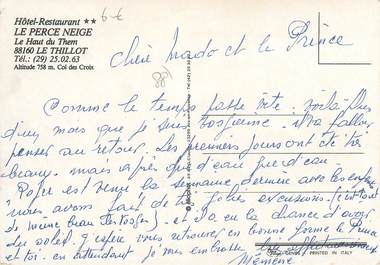 Hôtel-Restaurant ★★
LE PERCE NEIGE
Le Haut du Them
88160 LE THILLOT
Tél.: (29) 25.02.63
Altitude 758 m. Col des Croix
6 €
(88)
Chère Mado et le Prince
Comme le temps passe vite. voilà Plus
d'un mois que je suis Vosgienne il va falloir
penser au retour. Les premiers jours ont été très
beaux. mais après que d'eau que d'eau.
est venue la semaine dernière avec les enfants
nous avons fait de très jolies excursions (c'est tout
de même beau les Vosges) et on a eu la chance d'avoir
du soleil. J'espère vous retrouver en bonne forme le Prince
et toi. en attendant je vous embrasse
Mémène
PRINTED IN ITALY